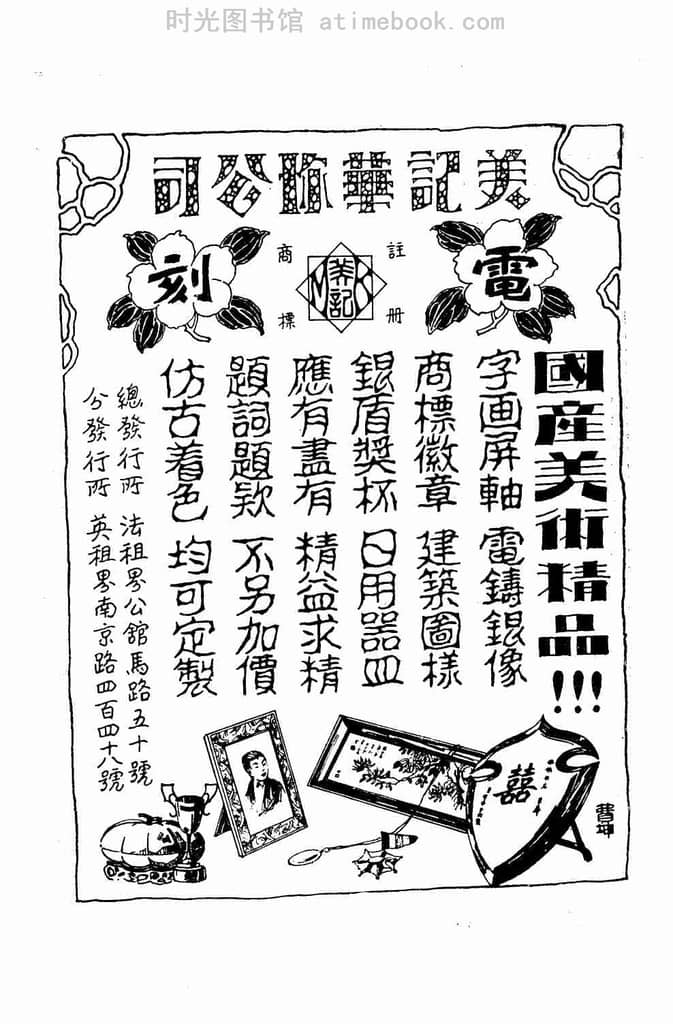 时光图书馆 atimebook.com
美記華珎公司
電刻
註冊
商標
美記
MK
國産美術精品!!!
字画屏軸 電鑄銀像
商標徽章 建築圖樣
銀盾獎杯 日用器皿
應有盡有 精益求精
題詞題欵 不另加價
仿古着色 均可定製
總發行所 法租界公館馬路五十號
分發行所 英租界南京路四百四十八號
囍